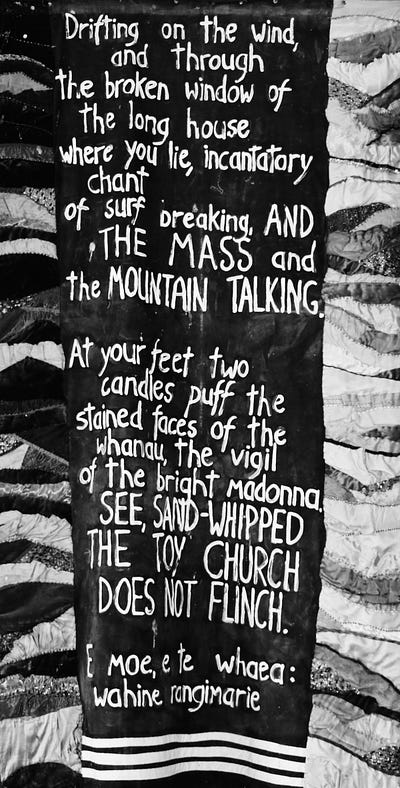 Drifting on the wind,
and through
the broken window of
the long house
where you lie, incantatory
chant
of surf breaking, AND
THE MASS and
the MOUNTAIN TALKING.
At your feet two
candles puff the
stained faces of the
whanau, the vigil
of the bright madonna.
SEE, SAND-WHIPPED
THE TOY CHURCH
DOES NOT FLINCH.
E moe, e te whaea:
wahine rangimarie